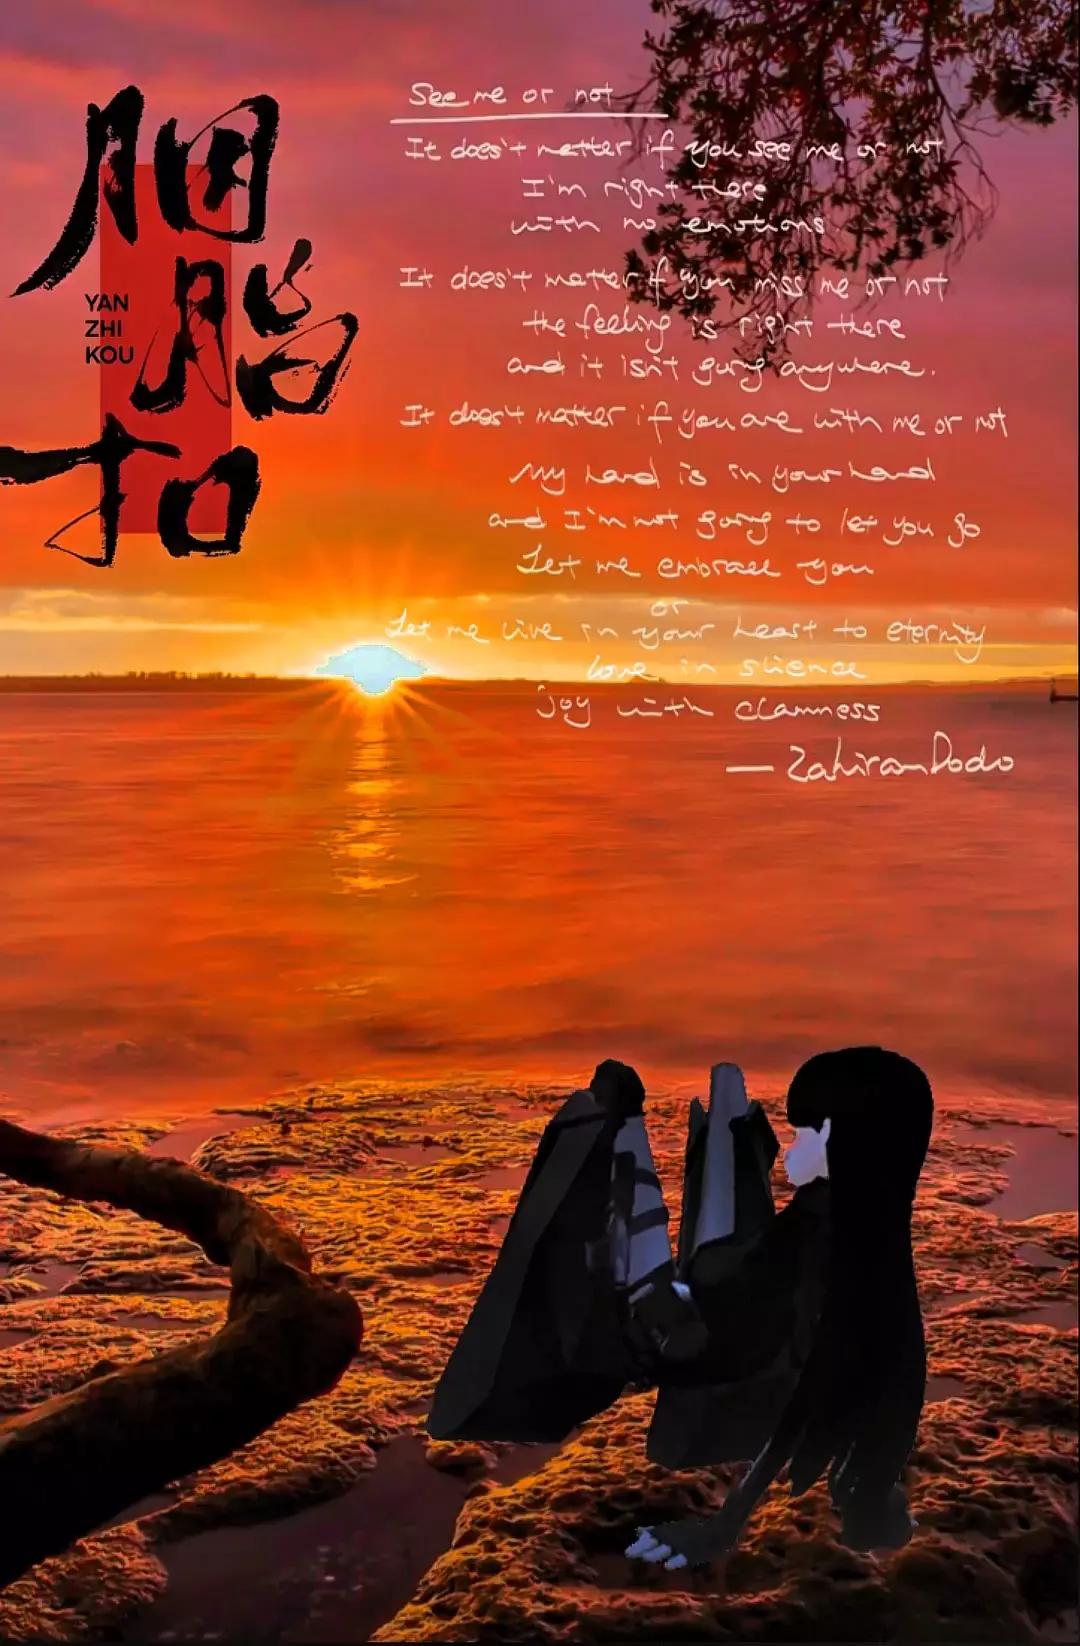 胭
脂
扣
YAN
ZHI
KOU
See me or not
It doesn't matter if you see me or not
I'm right there
with no emotions.
It doesn't matter if you miss me or not
the feeling is right there
and it isn't going anywhere.
It doesn't matter if you are with me or not
My hand is in your hand
and I'm not going to let you go
Let me embrace you
or
Let me live in your heart to eternity
love in slience
joy with clamness
— ZahiranDodo